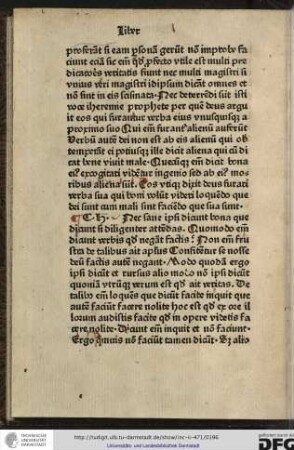 Liber
proferāt si eam ꝑsonā nō gerūt nō improbe fa
ciunt eciā sic em̄ qd ꝓfecto vtile est multi pre
dicatores veritatis fiunt nec multi magistri si
vnius veri magistri idipsum dicāt omnes et
nō sint in eis scismata. Nec deterrēdi sūt isti
voce iheremie prophete per quē deus argu
it eos qui furantur verba eius vnusquisqꝫ a
proximo suo Qui em̄ furant̄ alienū auferūt
Verbū autē dei non est ab eis alienū qui ob
temperāt ei potiusqꝫ ille dicit aliena qui cū di
cat bene viuit male. Quecūqꝫ em̄ dicit bona
ei⁹ excogitari vidēt̄ur ingenio sed ab ei⁹ mo
ribus aliena sūt. Eos vtiqꝫ dixit deus furari
verba sua qui boni volūt videri loquēdo que
dei sunt cum mali sint faciēdo que sua sunt
Nec sane ipsi dicunt bona que
dicunt si diligenter attēdas. Quomodo em̄
dicunt verbis qd negāt factis? Non em̄ fru
stra de talibus ait aplus Confitētur se nosse
deū factis autē negant. Modo quodā ergo
ipsi dicūt et rursus alio modo nō ipsi dicūt
quoniā vtrūqꝫ verum est qd ait veritas. De
talibꝰ em̄ loquēs que dicūt facite inquit que
autē faciūt facere nolite hoc est qd ex ore il
lorum audistis facite qd in opere videtis fa
cere nolite. Dicunt em̄ inquit et nō faciunt.
Ergo quāuis nō faciūt tamen dicūt. Sꝫ alio
TECHNISCHE
UNIVERSITÄT
DARMSTADT
http://tudigit.ulb.tu-darmstadt.de/show/inc-ii-471/0196
Universitäts- und Landesbibliothek Darmstadt
gefördert durch die
DFG